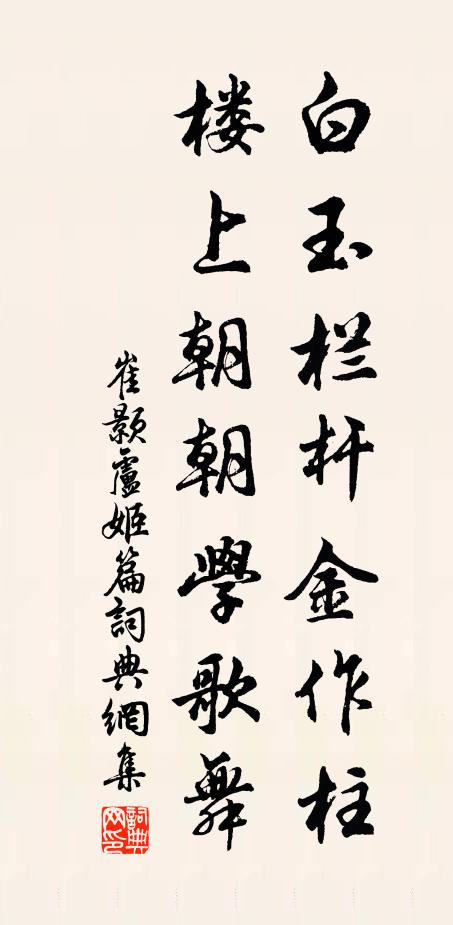 白玉栏杆金作柱
楼上朝朝學歌舞
崔颢盧姬篇詞典網集
詞典网印